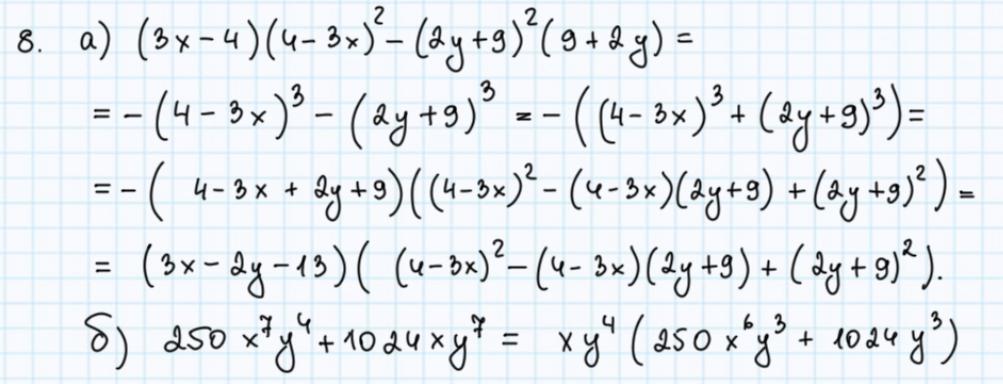 8. а) (3x-4)(4-3x)²-(2y+9)²(9+2y) =
= -(4-3x)³-(2y+9)³ = -((4-3x)³+(2y+9)³)=
= -( 4-3x + 2y+9)((4-3x)²-(4-3x)(2y+9)+(2y+9)²) =
= (3x-2y-13)( (4-3x)²-(4-3x)(2y+9)+(2y+9)²).
б) 250 x⁷y⁴+1024xy⁷ = xy⁴(250x⁶y³+1024y³)